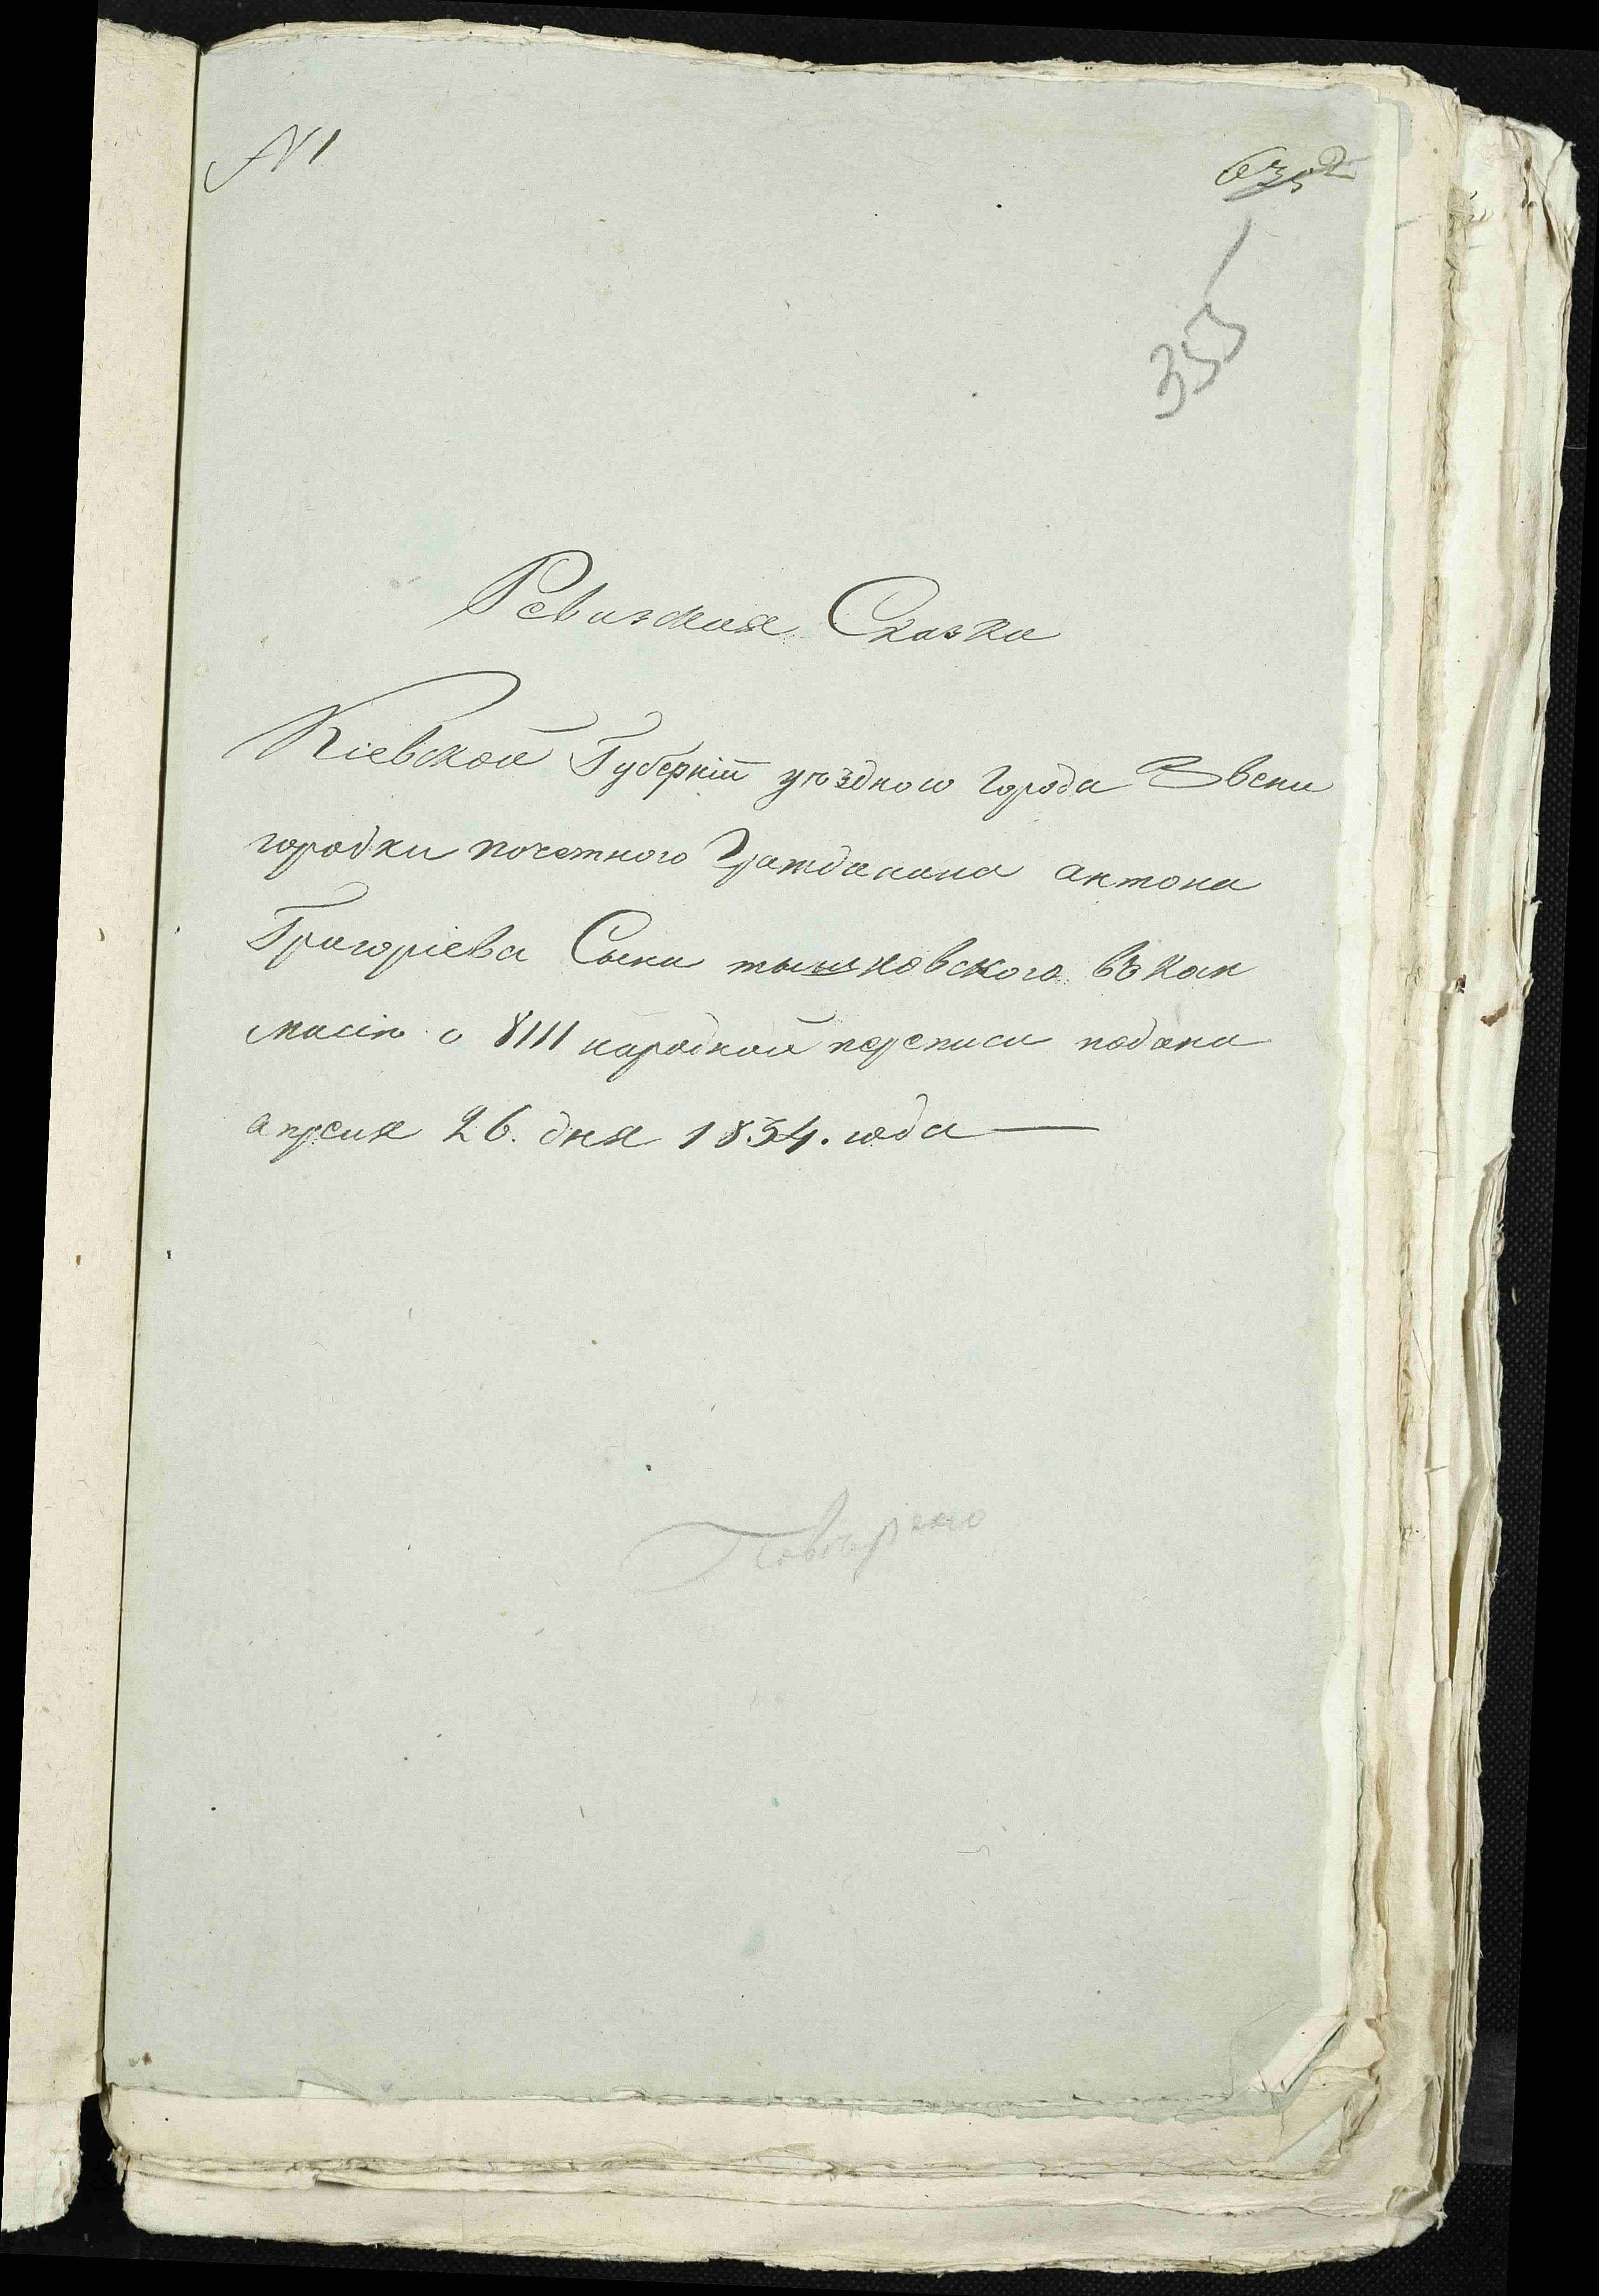 N 1
355
Ревизская Сказка
Кіевской Губерніи уѣзднаго города Звени
городки почетного Гражданина антона
Григоріева Сына тышковского въ Ком
мисію о 8111 народной переписи подана
апреля 26. дня 1834. года
Повѣрено